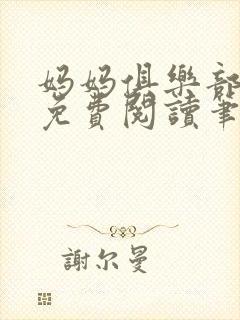 妈妈俱樂部
免費閱讀筆
謝尔曼